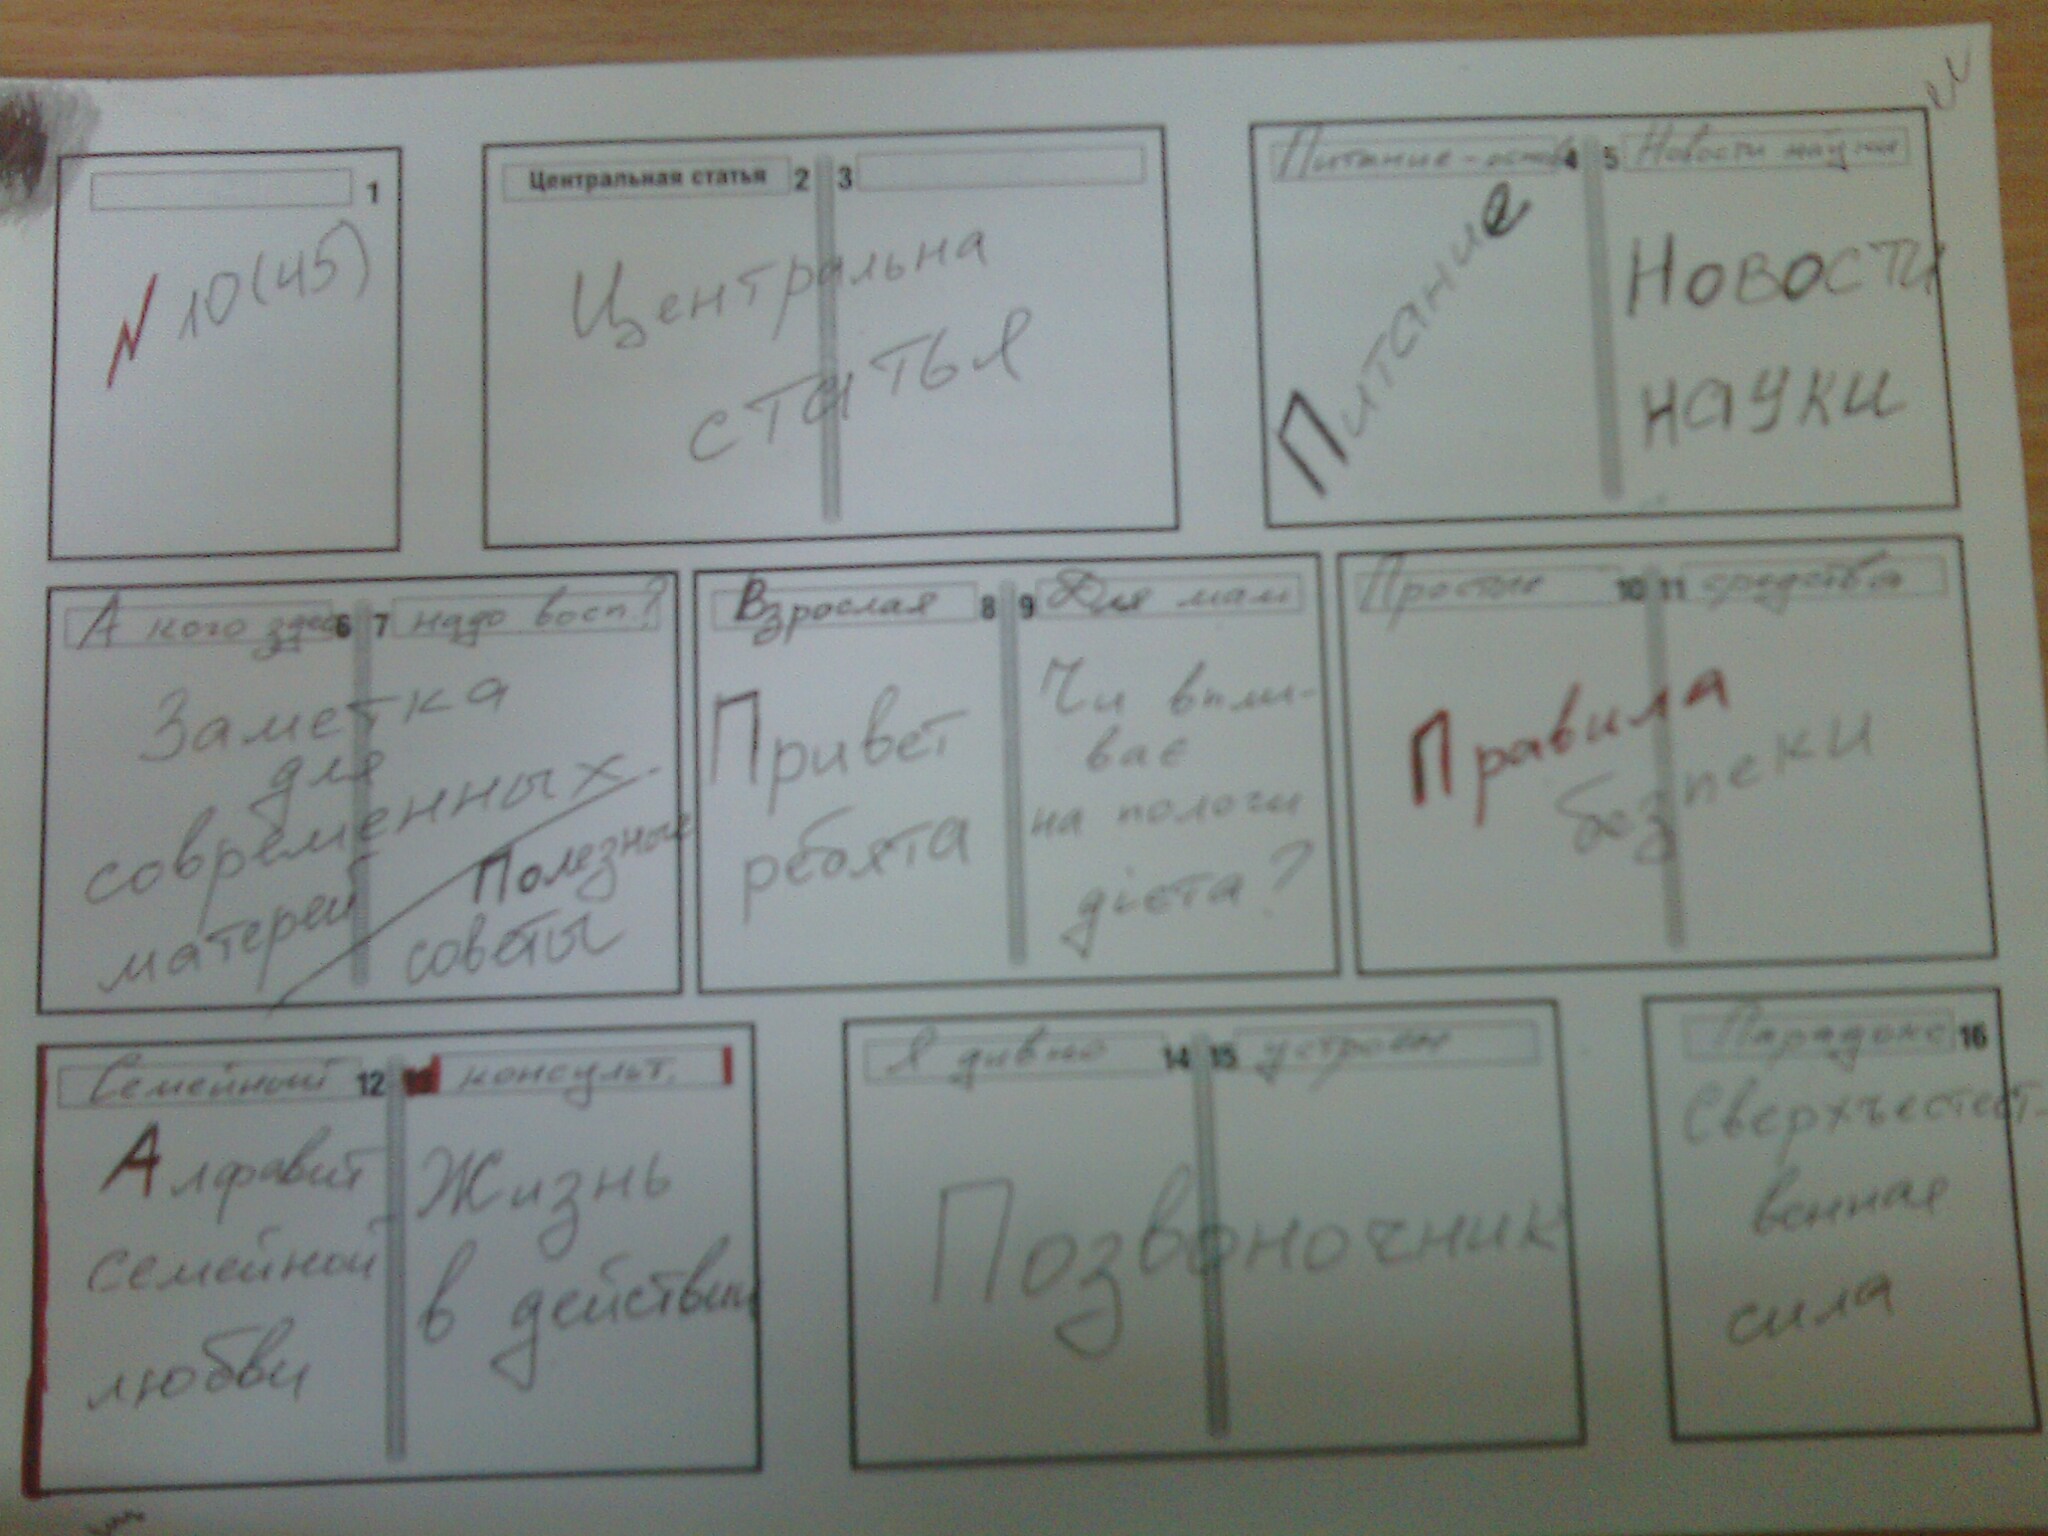 1
N 10(45)
Центральная статья 2 3
Центральна
статья
Питание - основ 4 5 Новости науки
Питание
Новости
науки
А кого здес 6 7 надо восп?
Заметка
для
современных
матерей
Полезные
советы
Взрослая 8 9 Для мам
Привет
ребята
Чи впли-
ває
на пологи
дієта?
Простые 10 11 средства
Правила
безпеки
Семейный 12 консульт.
Алфавит
семейной
любви
Жизнь
в действии
Я дивно 14 15 устроен
Позвоночник
Парадокс 16
Сверхъестест-
венная
сила